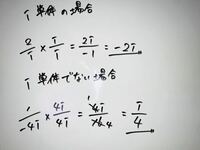 i 単体の場合
2/i × i/i = 2i/-1 = -2i
i 単体でない場合
1/-4i × 4i/4i = 4i/16 = i/4